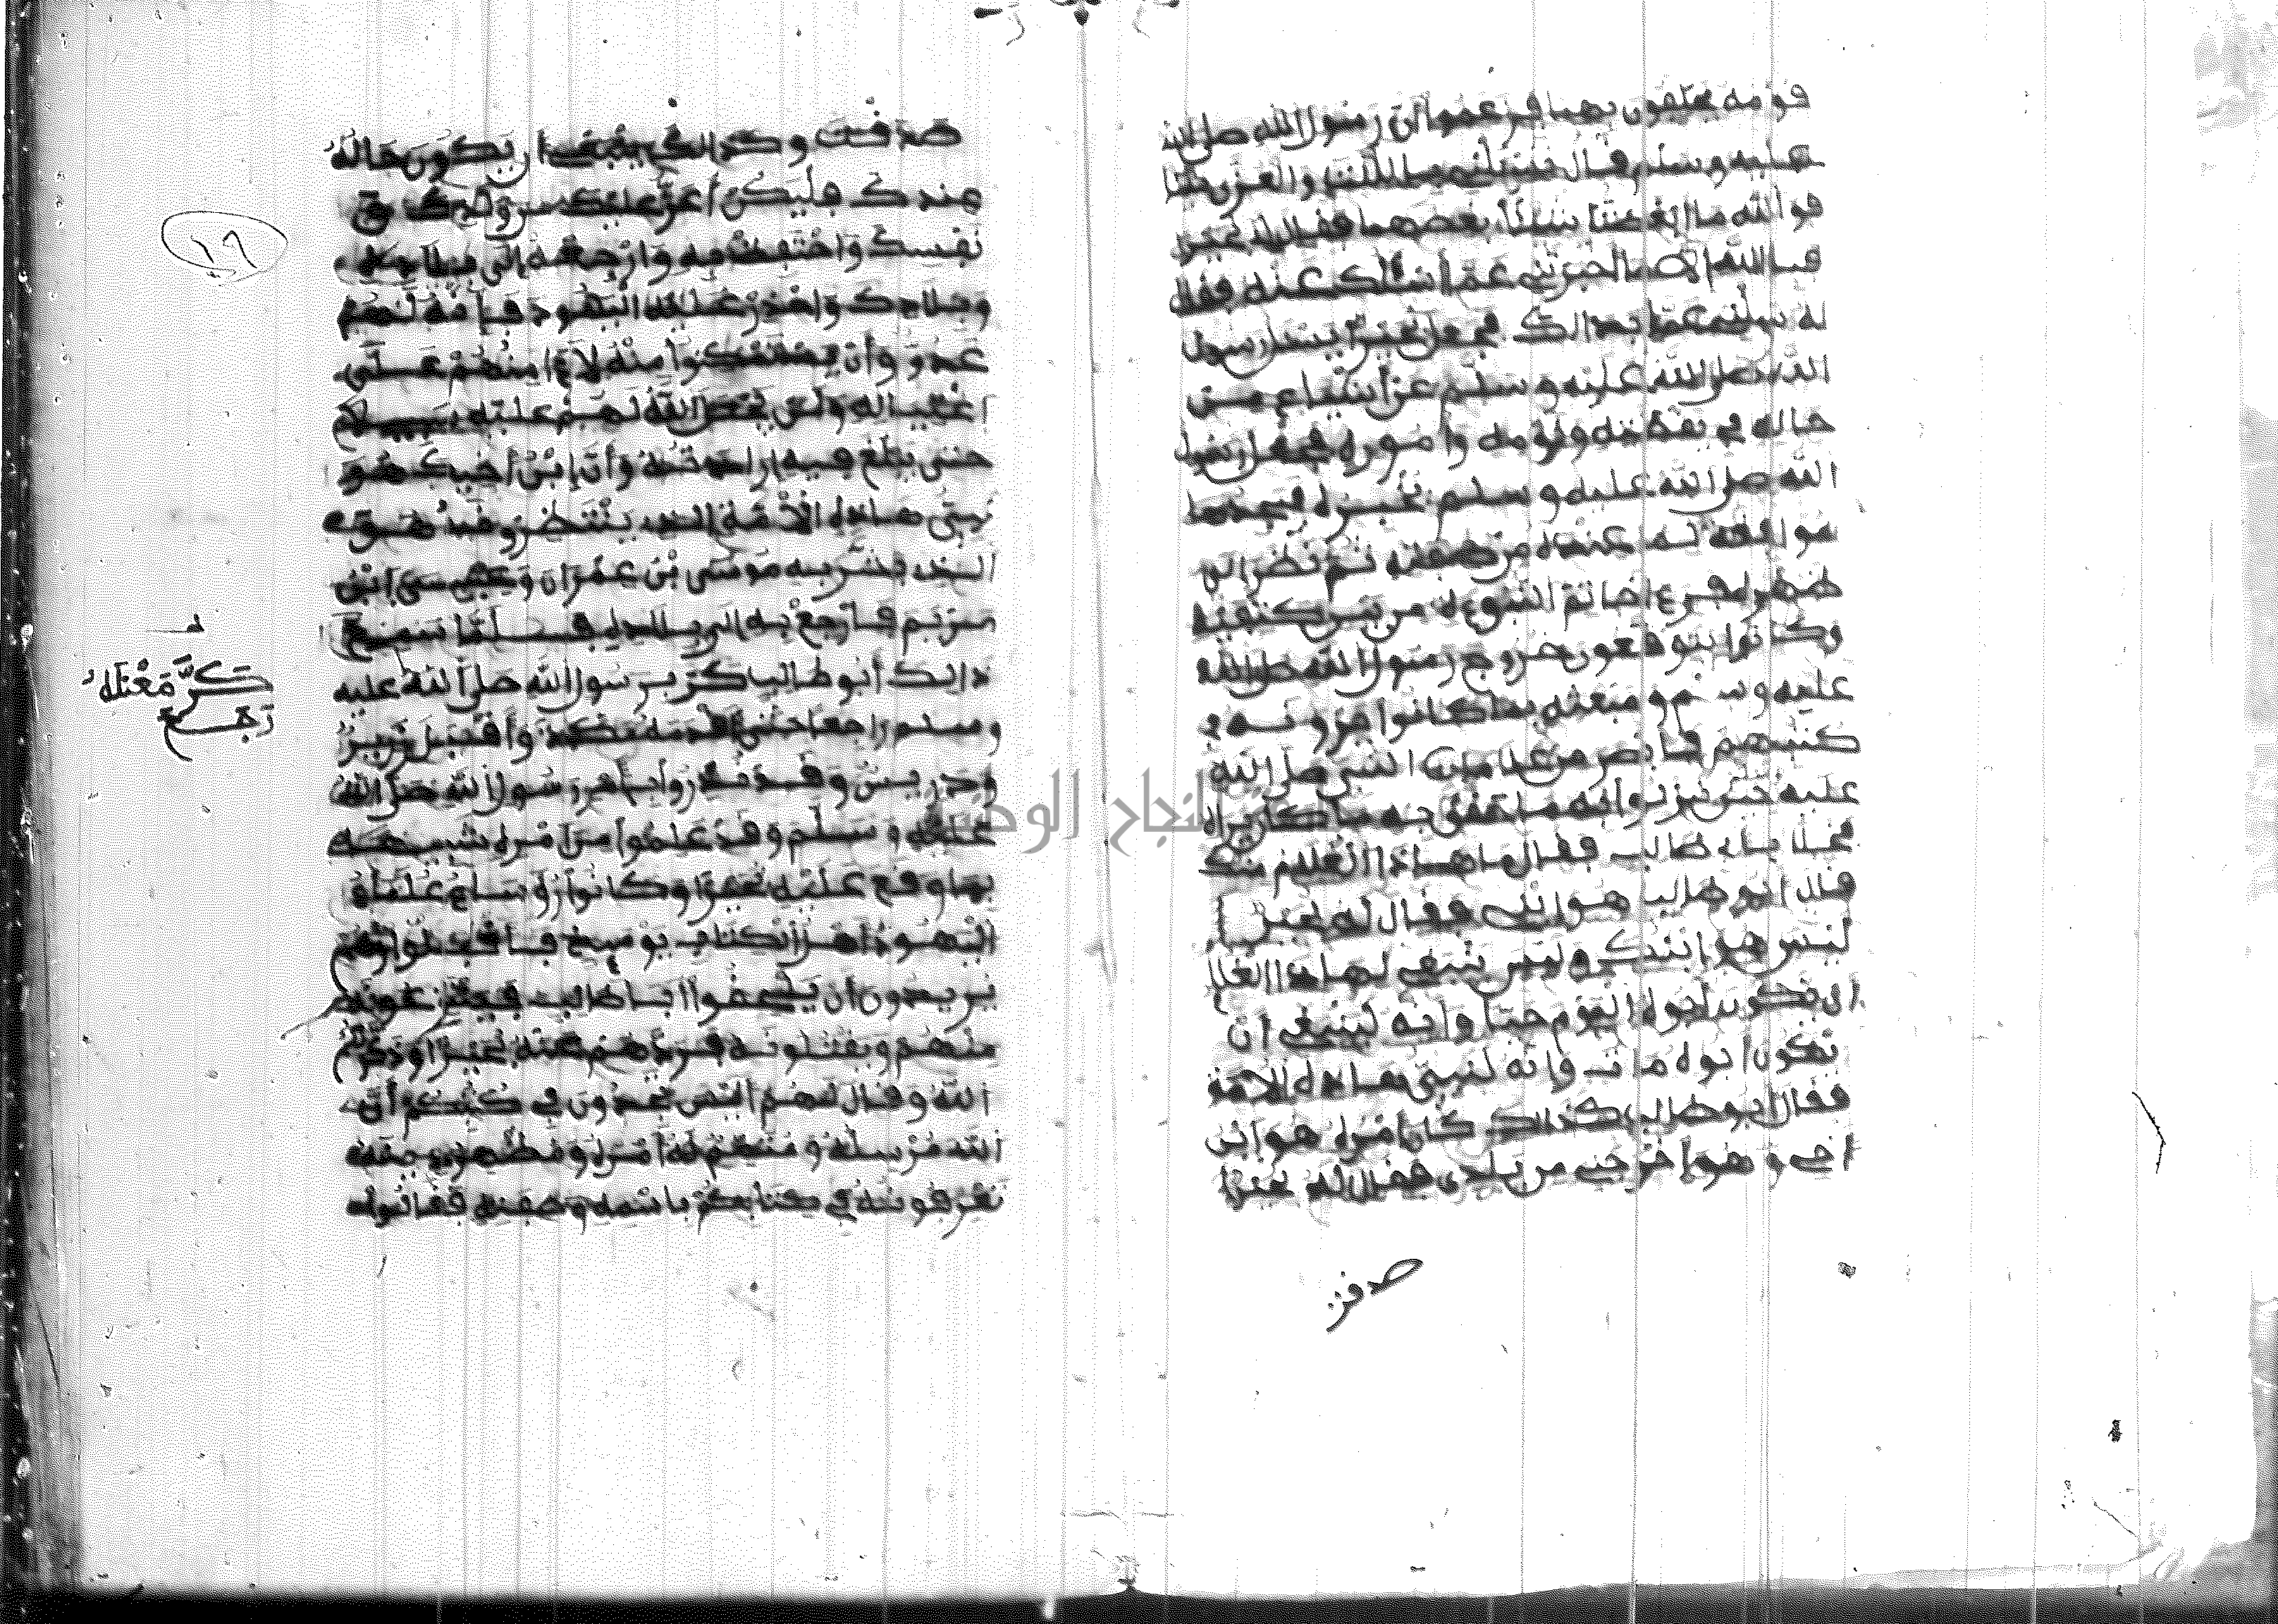 قومه يحلفون بهما فزعموا ان رسول الله صلى الله
عليه وسلم قال تسئلني باللات والعزى شيئا
فو الله ما ابغضت شيئا بغضهما فقال له بحيرا
فبالله الا ما اخبرتني عما أسألك عنه فقال
له سلني عما بدا لك فجعل بحيرا يسئل رسول
الله صلى الله عليه وسلم عن أشياء من
حاله في يقظته ونومه وأموره فجعل رسول
الله صلى الله عليه وسلم يخبره فيجدها
موافقة لما عنده من صفته ثم نظر الى
ظهره فرءا خاتم النبوءة من بين كتفيه
وكانوا يتوقعون خروج رسول الله صلى الله
عليه وسلم ومبعثه بما كانوا يجدونه في
كتبهم فأبصر من علامات النبي صلى الله
عليه حتى
فخلا بأبي طالب فقال ما هاذا الغلام منك
فقال ابو طالب هو ابني فقال له بحيرا
ليس هو ابنك وليس ينبغي لهاذا الغلا
ان يكون أبوه اليوم حيا وانه لينبغي ان
يكون ابوه مات وانه لنبي هاذه الامة
فقال ابو طالب كذالك كان امره هو ابن
أخي وهو اخر من فقال له بحيرا
صدقت
صدقت وكذالك ينبغي ان يكون حاله
عندك فليكن أعز عليك من ولدك ومن
نفسك واحتفظ به وارجعه الى
وبلادك واحذر عليه اليهود فإنه لهم
عدو وأن يتمكنوا منه لاءا منهم على
اغتياله ولن يجعل الله لهم عليه سبيلا
حتى يبلغ فيه ارادته وأن ابن أخيك هو
نبي هاذه الامة الذي ينتظرو هو
الذي بشر به موسى بن عمران وعيسى ابن
مريم فارجع به الى بلاده فلما سمع
ذالك أبو طالب كر برسول الله صلى الله عليه
وسلم راجعا حتى قدمه مكة وأقبل زبير
ودريس وقد رسول الله صلى الله
عليه وسلم وقد علموا من امره شبيهه
بما وقع عليه بحيرا وكانوا رؤساء علماء
اليهود اهل الكتاب يومئذ فأقبلوا وهم
يريدون ان يلحقوا ابا طالب
منهم ويقتلونه فردهم عنه بحيرا وذكرهم
الله وقال لهم اليس تجدون في كتبكم أن
الله مرسله و له أمره ومظهر دينه
تعرفونه في كتابكم باسمه وصفته فقالوا
١٦
كر معناه
رجع
النجاح الوطنية